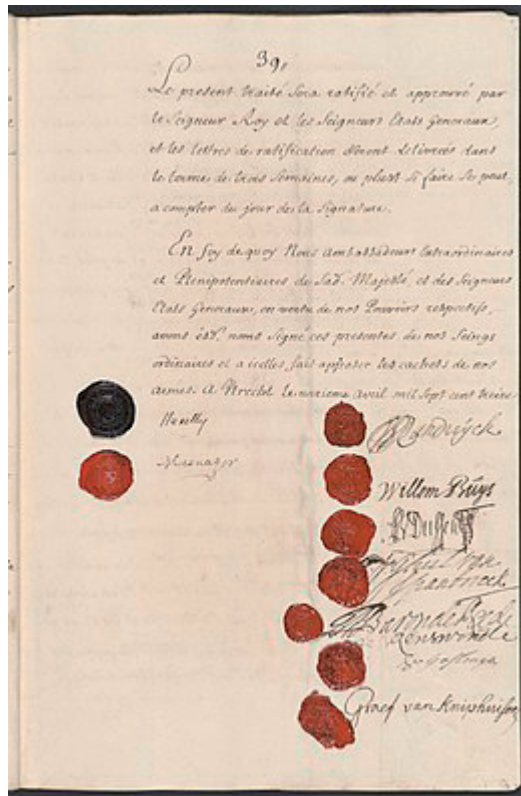 39.
Le present traité sera ratifié et approuvé par
le Seigneur Roy et les Seigneurs Etats Generaux,
et les lettres de ratification seront delivrées dans
le terme de trois semaines, ou plustôt si faire se peut,
a compter du jour de la Signature.
En foy de quoy Nous Ambassadeurs Extraordinaires
et Plenipotentiaires de Sad. Majesté, et des Seigneurs
Etats Generaux, en vertu de nos Pouvoirs respectifs,
avons esd. noms signé ces presentes de nos Seings
ordinaires et a icelles fait apposer les cachets de nos
armes. a Utrecht le onzieme avril mil sept cent treize
Huxelles
Mesnager
Randwyck
Willem Buys
Graef van Kniphuisen